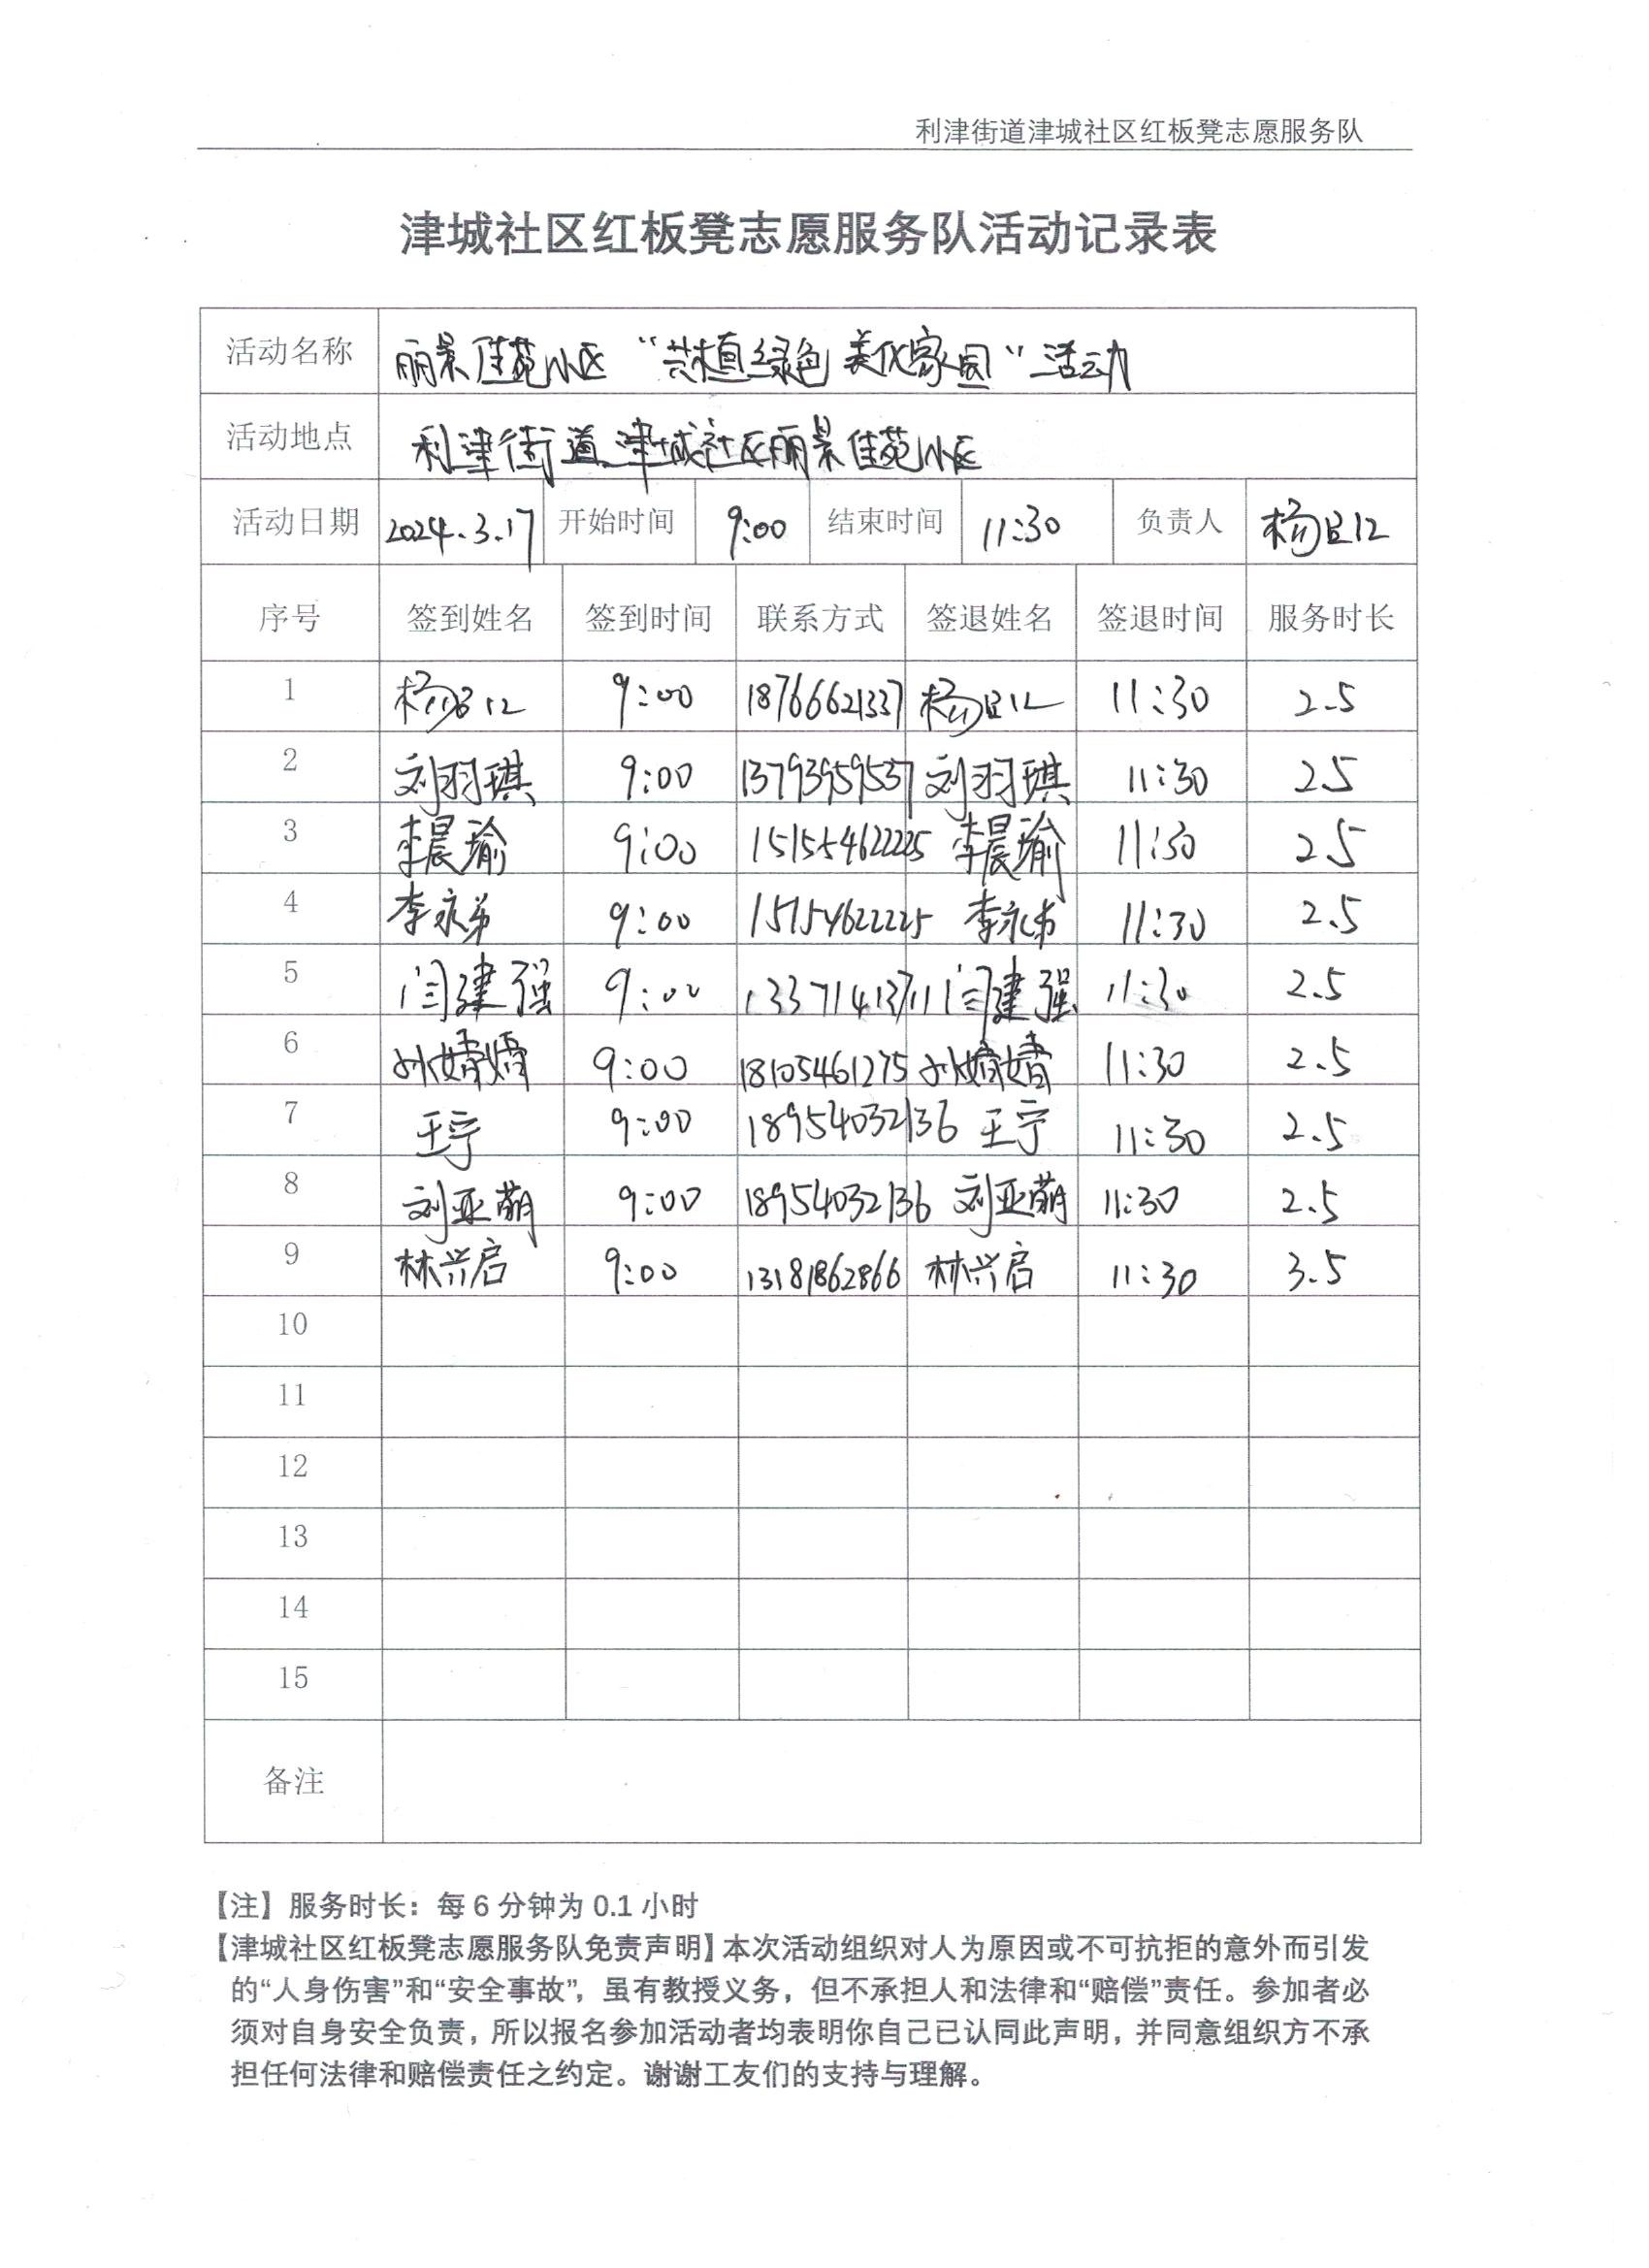 利津街道津城社区红板凳志愿服务队
津城社区红板凳志愿服务队活动记录表
活动名称 丽景佳苑小区“共植绿色 美化家园”活动
活动地点 利津街道津城社区丽景佳苑小区
活动日期 2024.3.17 开始时间 9:00 结束时间 11:30 负责人
序号 签到姓名 签到时间 联系方式 签退姓名 签退时间 服务时长
1 9:00 18766621337 11:30 2.5
2 刘羽琪 9:00 13793959537 刘羽琪 11:30 2.5
3 李晨瑜 9:00 李晨瑜 11:30 2.5
4 李永弟 9:00 15154622225 李永弟 11:30 2.5
5 闫建强 9:00 13371413711 闫建强 11:30 2.5
6 孙婧婧 9:00 18105461275 孙婧婧 11:30 2.5
7 王宁 9:00 18954032136 王宁 11:30 2.5
8 刘亚萌 9:00 18954032136 刘亚萌 11:30 2.5
9 林兴启 9:00 13181862866 林兴启 11:30 3.5
10
11
12
13
14
15
备注
【注】服务时长：每 6 分钟为 0.1 小时
【津城社区红板凳志愿服务队免责声明】本次活动组织对人为原因或不可抗拒的意外而引发
的“人身伤害”和“安全事故”，虽有教授义务，但不承担人和法律和“赔偿”责任。参加者必
须对自身安全负责，所以报名参加活动者均表明你自己已认同此声明，并同意组织方不承
担任何法律和赔偿责任之约定。谢谢工友们的支持与理解。